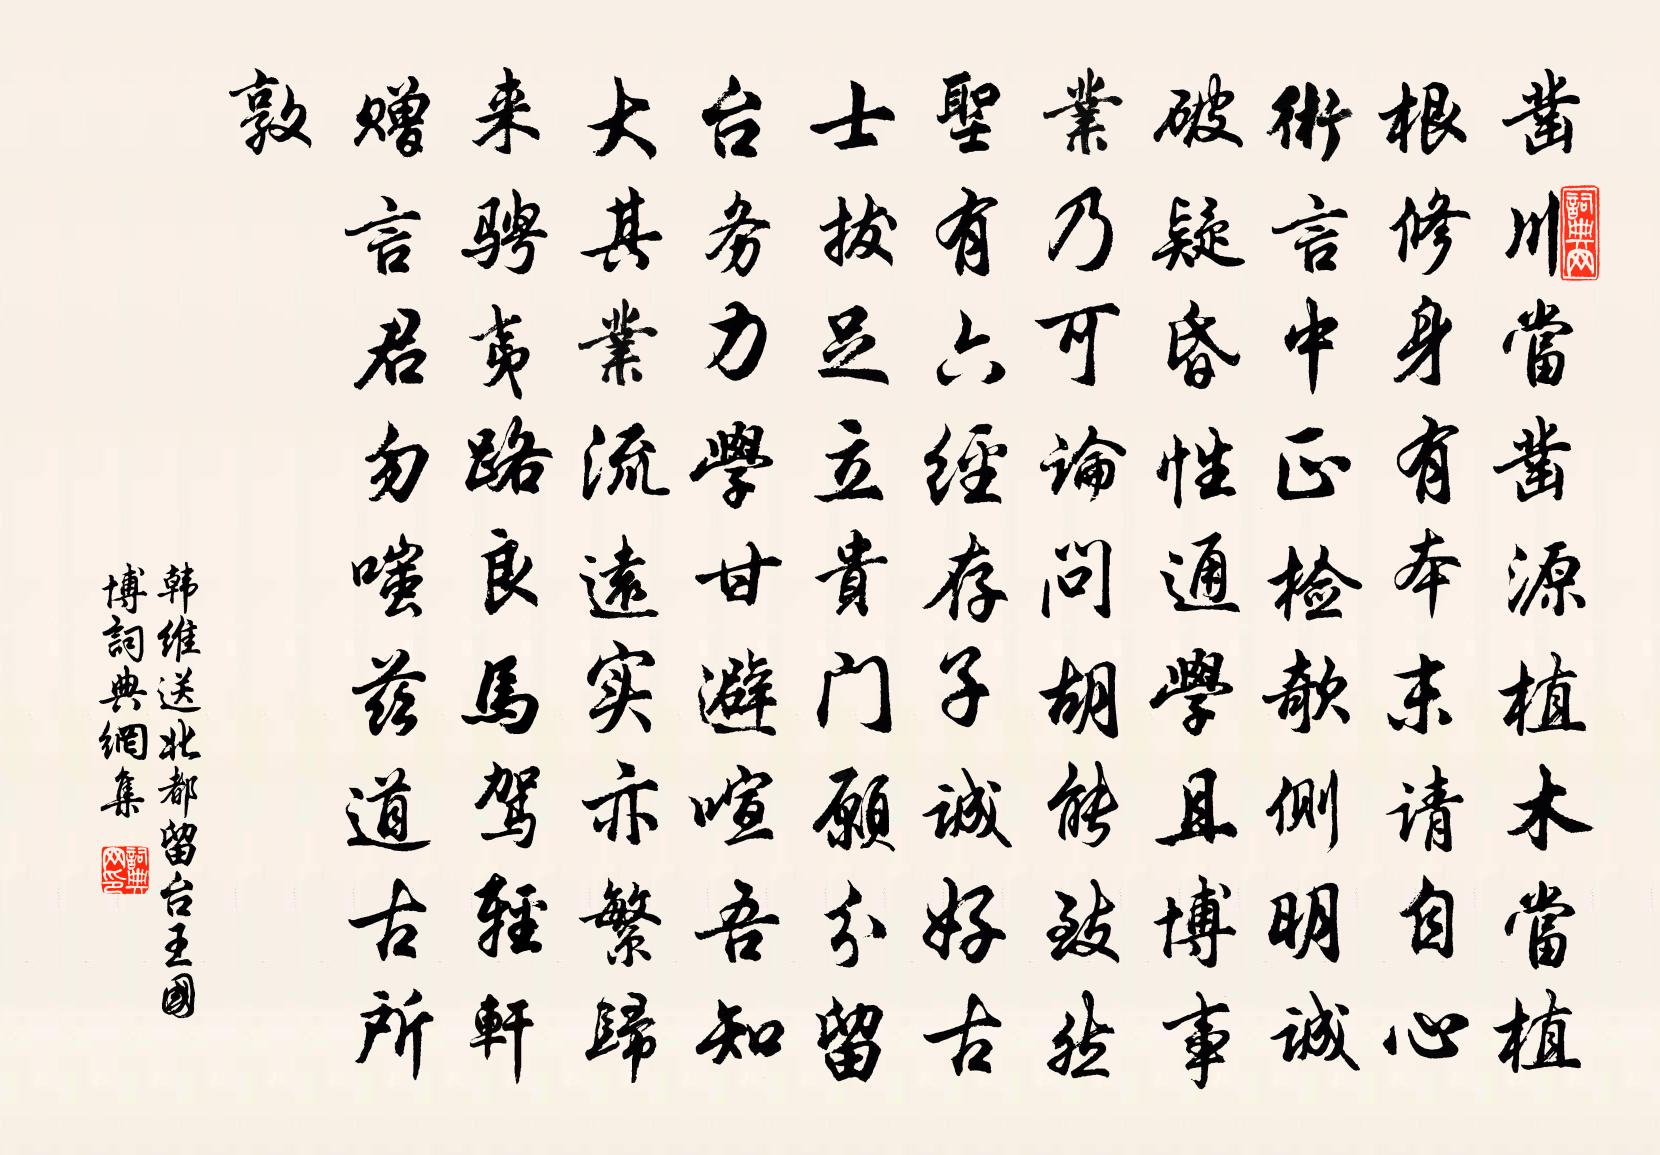 凿川當凿源植木當植
根修身有本末请自心
術言中正检欹側明誠
破疑昏性通學且博事
業乃可論问胡能致然
聖有六經存子诚好古
士拔足立貴门願分留
台务力學甘避喧吾知
大其業流遠实亦繁歸
来骋夷路良馬驾輕軒
赠言君勿嗤兹道古所
敦
韩维送北都留台王國
博詞典網集
詞典网
詞典网印